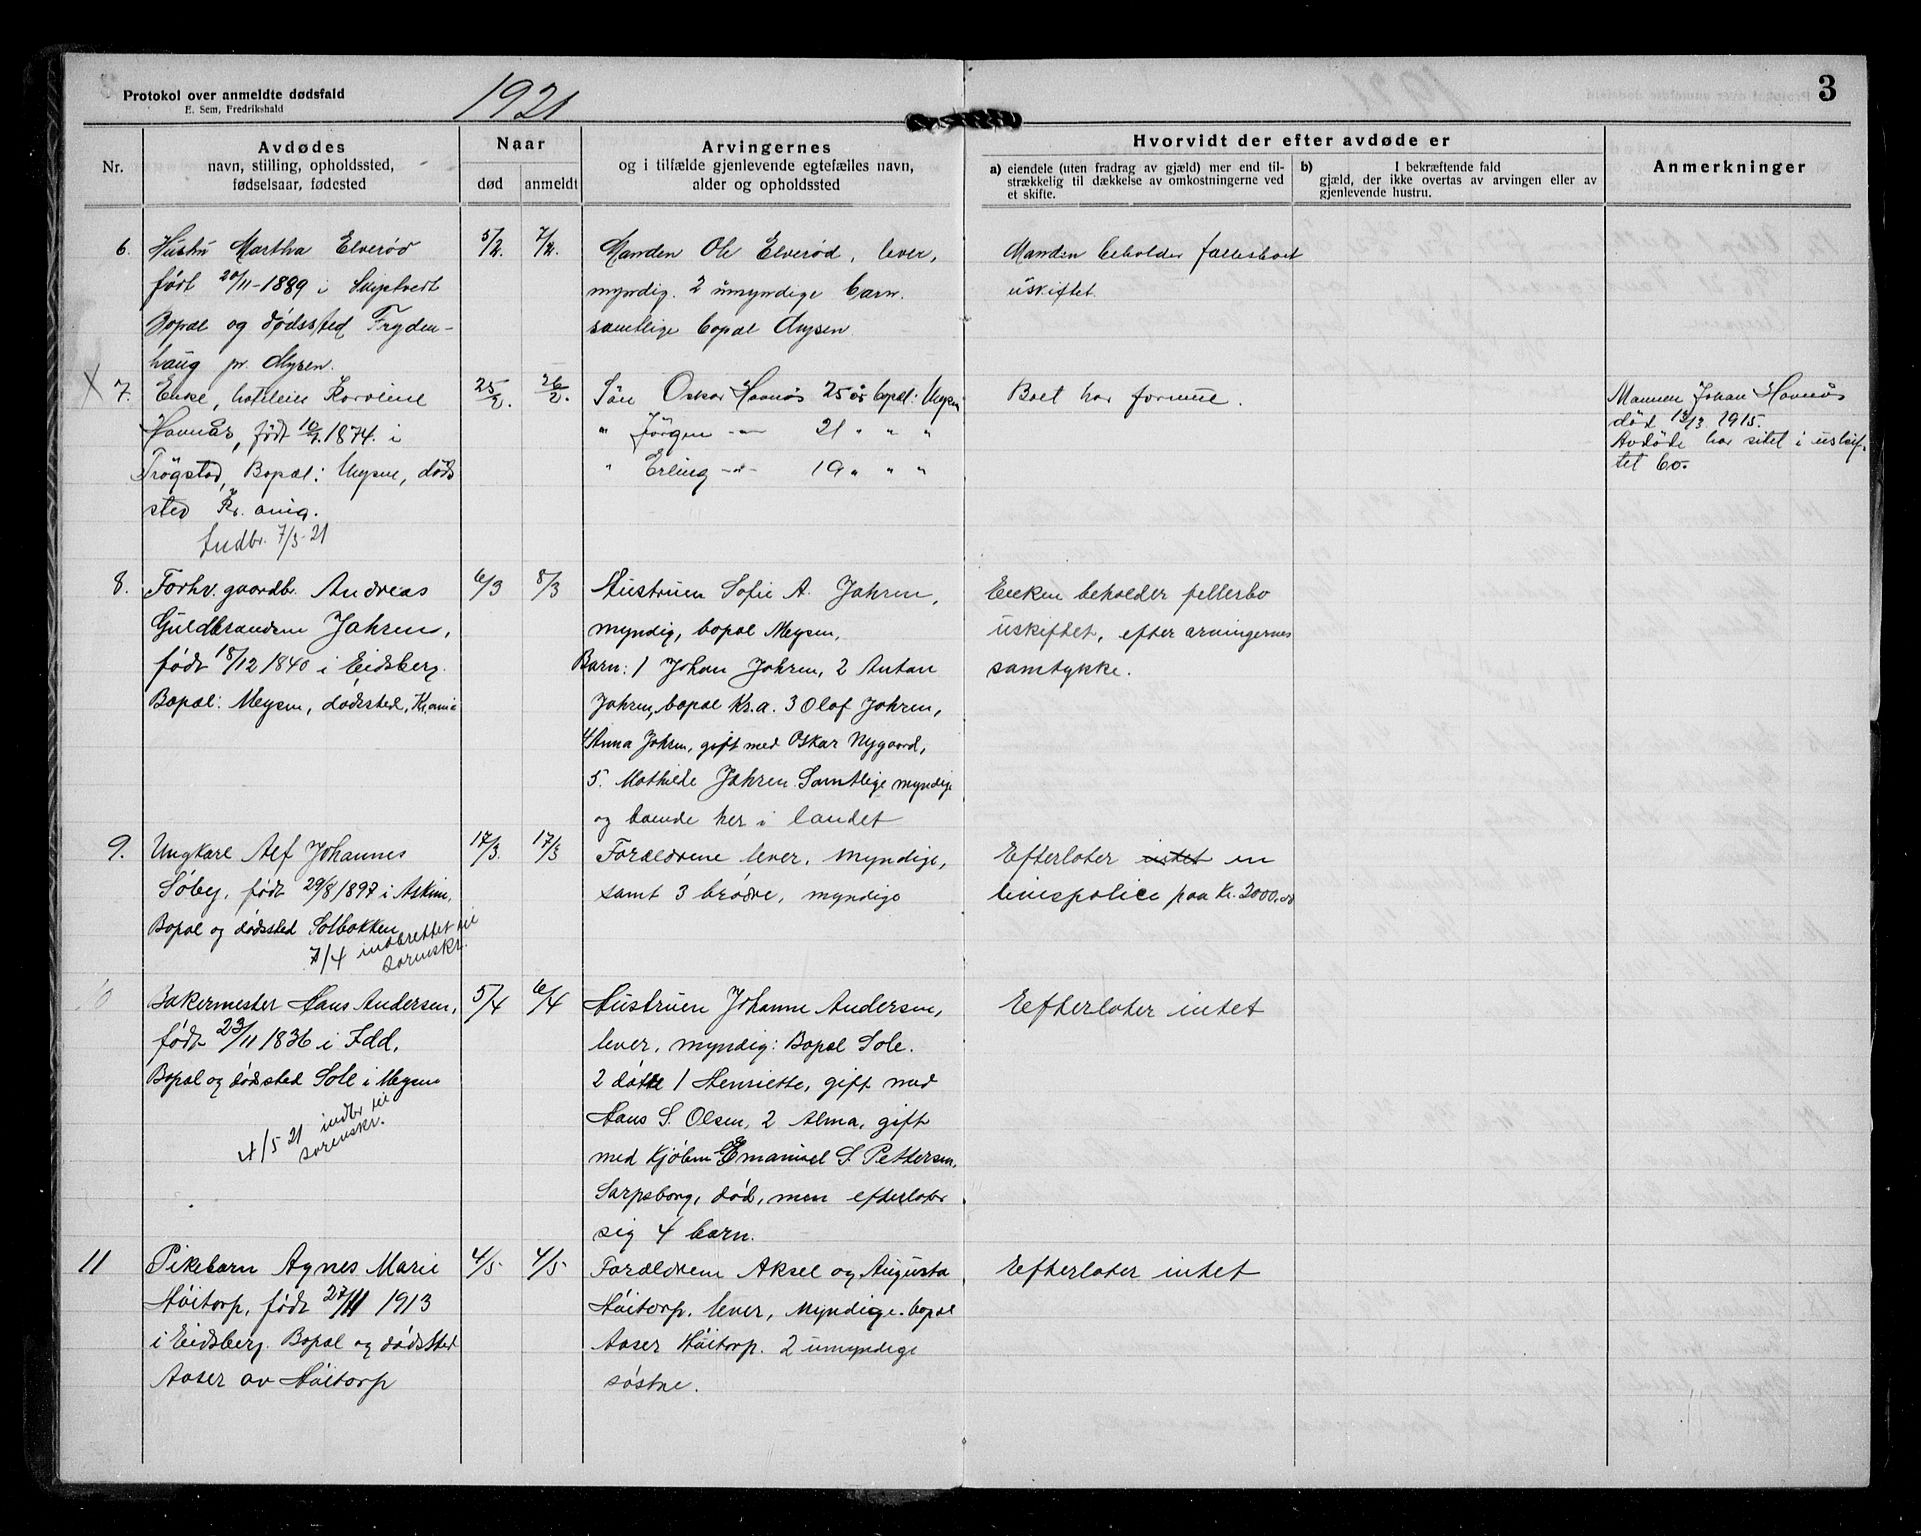 Protokol over anmeldte dødsfald
E. Sem, Fredrikshald
1921
3
Nr.
Avdødes
navn, stilling, opholdssted,
fødselsaar, fødested
Naar
død
anmeldt
Arvingernes
og i tilfælde gjenlevende egtefælles navn,
alder og opholdssted
Hvorvidt der efter avdøde er
a) eiendele (uten fradrag av gjæld) mer end til-
strækkelig til dækkelse av omkostningerne ved
et skifte.
b) I bekræftende fald
gjæld, der ikke overtas av arvingen eller av
gjenlevende hustru.
Anmerkninger
6.
Hustru Martha Elverød
født 20/11-1889 i Skiptvedt
Bopæl og dødssted Fryden-
haug pr. Mysen.
5/2.
7/2.
Manden Ole Elverød, lever,
myndig. 2 umyndige barn.
samtlige bopæl Mysen.
Manden beholder fællesboet
uskiftet.
X 7.
Enke, Karoline
Havnås, født 10/7 1874. i
Trøgstad, Bopæl: Mysen, døds
sted Kr.ania.
Indbr. 7/3-21
25/2.
26/2.
Søn Oskar Havnås 25 år bopæl: Mysen
" Jörgen -"- 21 " " "
" Erling -"- 19 " " "
Boet har formue.
Mannen Johan Havnås
død 13/3. 1915.
Avdøde har sitet i uskif-
tet bo.
8.
Forhv. gaardbr. Andreas
Guldbrandsen Jahren,
født 18/12 1840 i Eidsberg.
Bopæl: Mysen, dødssted, Kr.ania
6/3
8/3
Hustruen Sofie A. Jahren,
myndig, bopæl Mysen,
Barn: 1 Johan Jahren, 2 Anton
Jahren, bopæl Kr.a. 3 Olaf Jahren,
4 Anna Jahren, gift med Oskar Nygaard,
5. Mathilde Jahren. Samtlige myndige
og boende her i landet
Enken beholder fellesbo
uskiftet, efter arvingernes
samtykke.
9.
Ungkarl Alf Johannes
Søby, født 29/8 1897 i Askim,
Bopæl og dødssted Solbakken
7/4 indberettet til
sorenskr.
17/3.
17/3
Forældrene lever, myndige,
samt 3 brødre, myndige
Efterlater intet en
livespolice paa Kr. 2000.00
10
Bakermester Hans Andersen,
født 23/11 1836 i Idd,
Bopæl og dødssted Sole i Mysen
4/5 21 indbr til
sorenskr.
5/4
6/4
Hustruen Johanne Andersen,
lever, myndig: Bopæl Sole.
2 døtre 1 Henriette, gift med
Hans S. Olsen, 2 Alma, gift
med Kjøbm Emanuel S. Pettersen,
Sarpsborg, død, men efterlater
sig 4 barn.
Efterlater intet
11
Pikebarn Agnes Marie
Høitorp, født 27/11 1913
i Eidsberg. Bopæl og dødssted
Aaser av Høitorp
4/5
4/5
Forældrene Aksel og Augusta
Høitorp, lever, Myndige. bopæl
Aaser Høitorp. 2 umyndige
søstre.
Efterlater intet